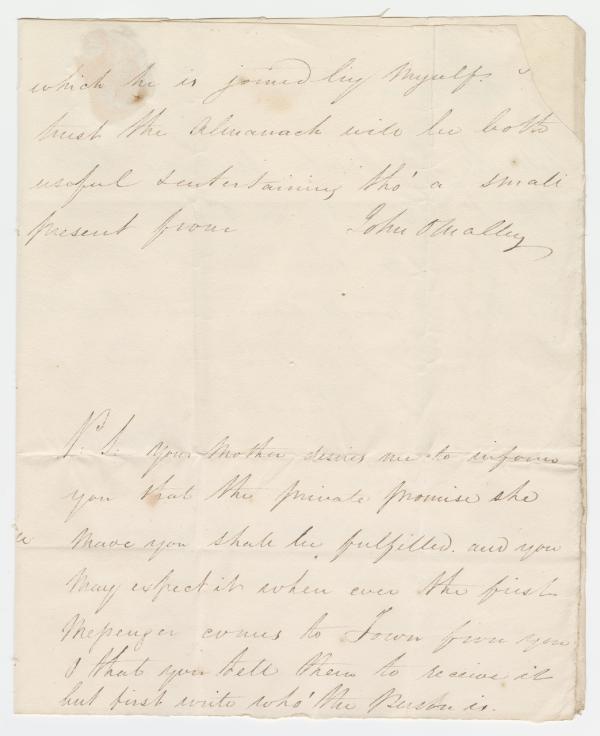 which he is joined by Myself. I
trust the Almanack will be both
useful & entertaining tho' a small
present from John OMalley
P. S. Your Mother desires me to inform
you that the private promise she
Made you shall be fulfilled. and you
May expect it when ever the first
Messenger comes to Town from you
& that you tell them to receive it
but first write who' the Person is.